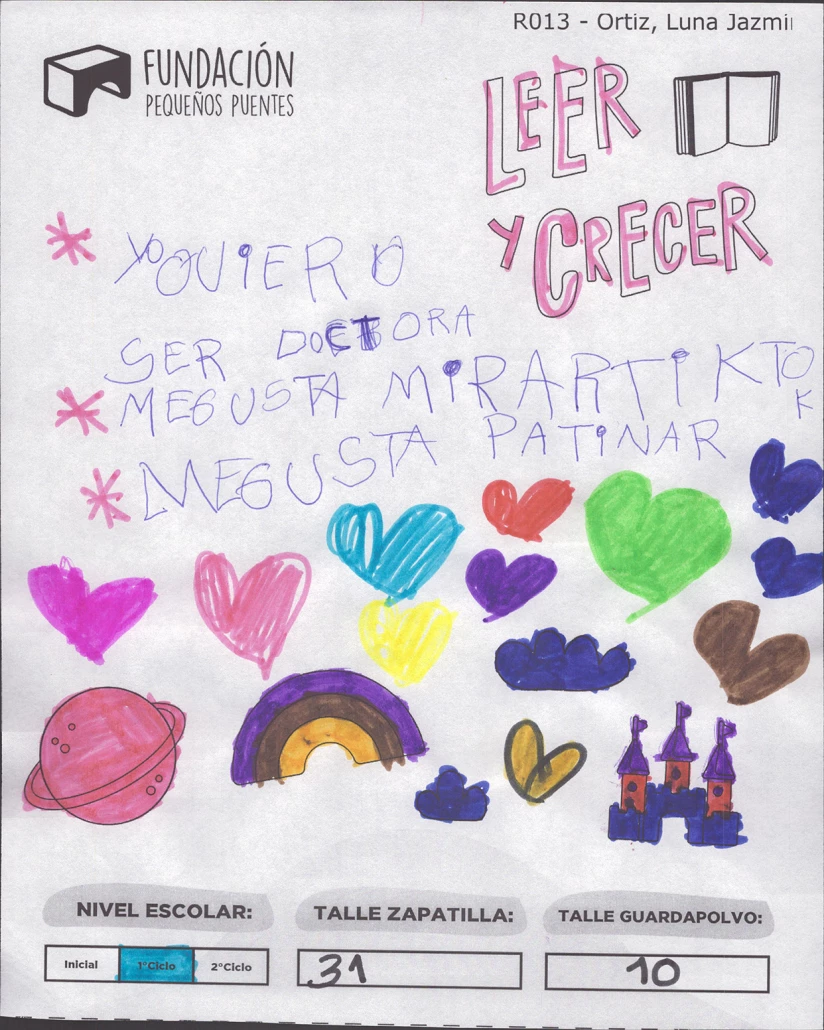 R013 - Ortiz, Luna Jazmi
FUNDACIÓN
PEQUEÑOS PUENTES
LEER
Y CRECER
* YO QUIERO
SER DOCTORA
* ME GUSTA MIRAR TIKTO
K
* ME GUSTA PATINAR
NIVEL ESCOLAR:
Inicial 1°Ciclo 2°Ciclo
TALLE ZAPATILLA:
31
TALLE GUARDAPOLVO:
10